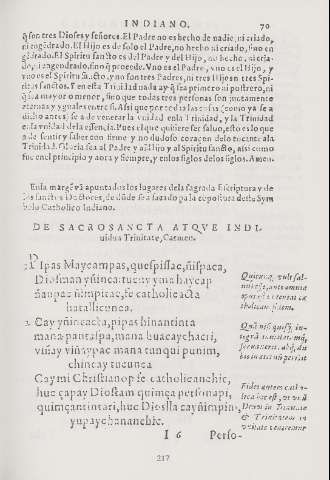 INDIANO. 70
q̃ son tres Dioses y señores. El Padre no es hecho de nadie, ni criado,
ni engẽdrado. El Hijo es de solo el Padre, no hecho ni criado, sino en
gẽdrado. El Spiritu sancto es del Padre y del Hijo, no hecho, ni cria-
do, ni engendrado, sino q̃ procede. Vno es el Padre, y no es el Hijo, y
vno es el Spiritu sancto, y no son tres Padres, ni tres Hijos n tres Spi-
ritus sanctos. Y en esta Trinidad nada ay q̃ sea primero ni postrero, ni
q̃ sea mayor o menor, sino que todas tres personas son juntamente
eternas y yguales entre si. Assi que por todas las cosas (como ya se a
dicho antes) se a de venerar la vnidad en la Trinidad, y la Trinidad
en la vnidad de la essencia. Pues el que quisiere ser saluo, esto es lo que
a de sentir y saber con firme y no dudoso coraçon de lo tocante a la
Trinidad. Gloria sea al Padre y al Hijo y al Spiritu sancto, assi como
fue en el principio y aora y siempre, y en los siglos de los siglos. Amen.
En la margẽ vã apuntados los lugares de la sagrada Escriptura y de
los sanctos Doctores, de dõde se a sacado para la cõpostura deste Sym
bolo Catholico Indiano.
DE SACROSANCTA ATQVE INDI-
uidua Trinitate, Carmen.
1 Pipas Maycampas, quespissac, ñispaca,
Diosman yñinca: tucuy yma haycap
ñaupac ñimpitac, fe catholicacta
hatallicunca.
2 Cay yñincacta, pipas hinantinta
mana pantaspa, mana huacaychacti,
viñay viñaypac mana cunqui punim,
chincay tucunca
Caymi Christianop fe catholicanchic,
huc çapay Diostam quimça personapi,
quimçantintari, huc Dioslla cayñimpin,
yupaychananchic.
Quicunq, vult sal-
uus esse, ante omnia
opus est vt teneat ca
tholicam fidem.
Quã nisi quisq; in-
tegrã inuiolatamq;
seruauerit, absq; du
bio in æternũ peribit
Fides autem catho-
lica hæc est, vt vnũ
Deum in Trinitate
& Trinitatem in
vnitate veneremur
I 6 Perso-
217